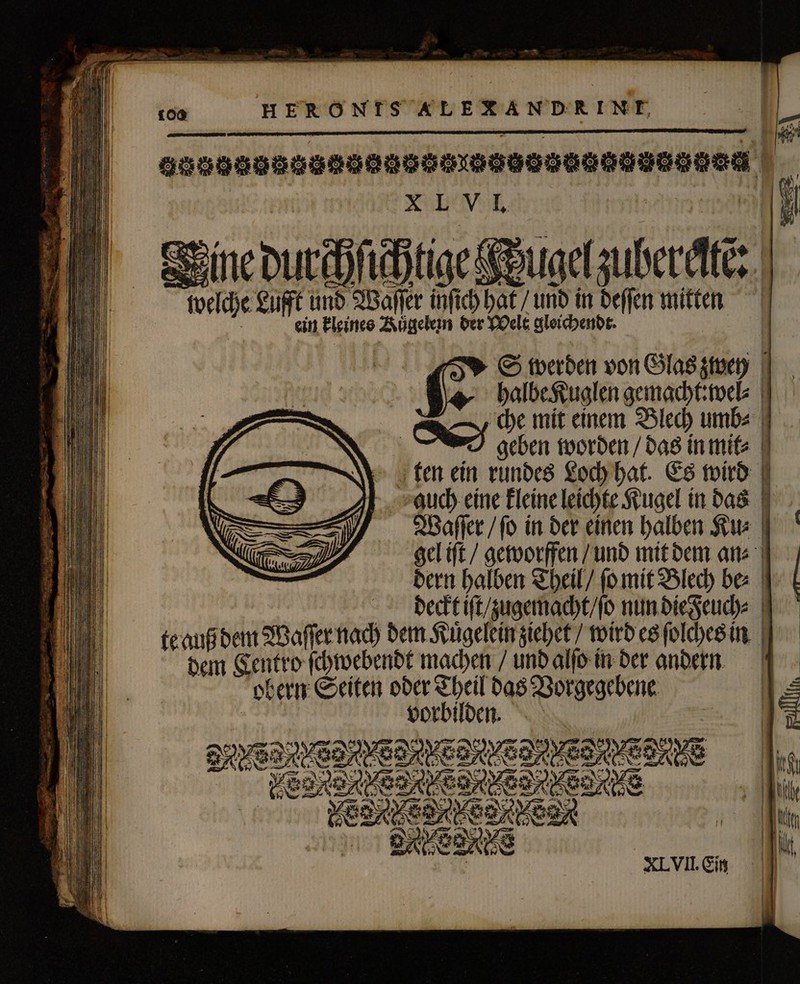 100 HERONIS ALEXANDRINI,
XLVI.
Eine durchſichtige Kugel zubereitẽ:
welche Lufft und Waſſer inſich hat / und in deſſen mitten
ein kleines Kügelein der Welt gleichendt.
ES werden von Glas zwey
halbe Kuglen gemacht: wel⸗
che mit einem Blech umb⸗
geben worden / das in mit⸗
ten ein rundes Loch hat. Es wird
auch eine kleine leichte Kugel in das
Waſſer / ſo in der einen halben Ku⸗
gel iſt / geworffen / und mit dem an⸗
dern halben Theil / ſo mit Blech be⸗
deckt iſt / zugemacht / ſo nun die Feuch⸗
te auß dem Waſſer nach dem Kuͤgelein ziehet / wird es ſolches in
dem Centro ſchwebendt machen / und alſo in der andern
obern Seiten oder Theil das Vorgegebene
vorbilden.
XLVII. Ein